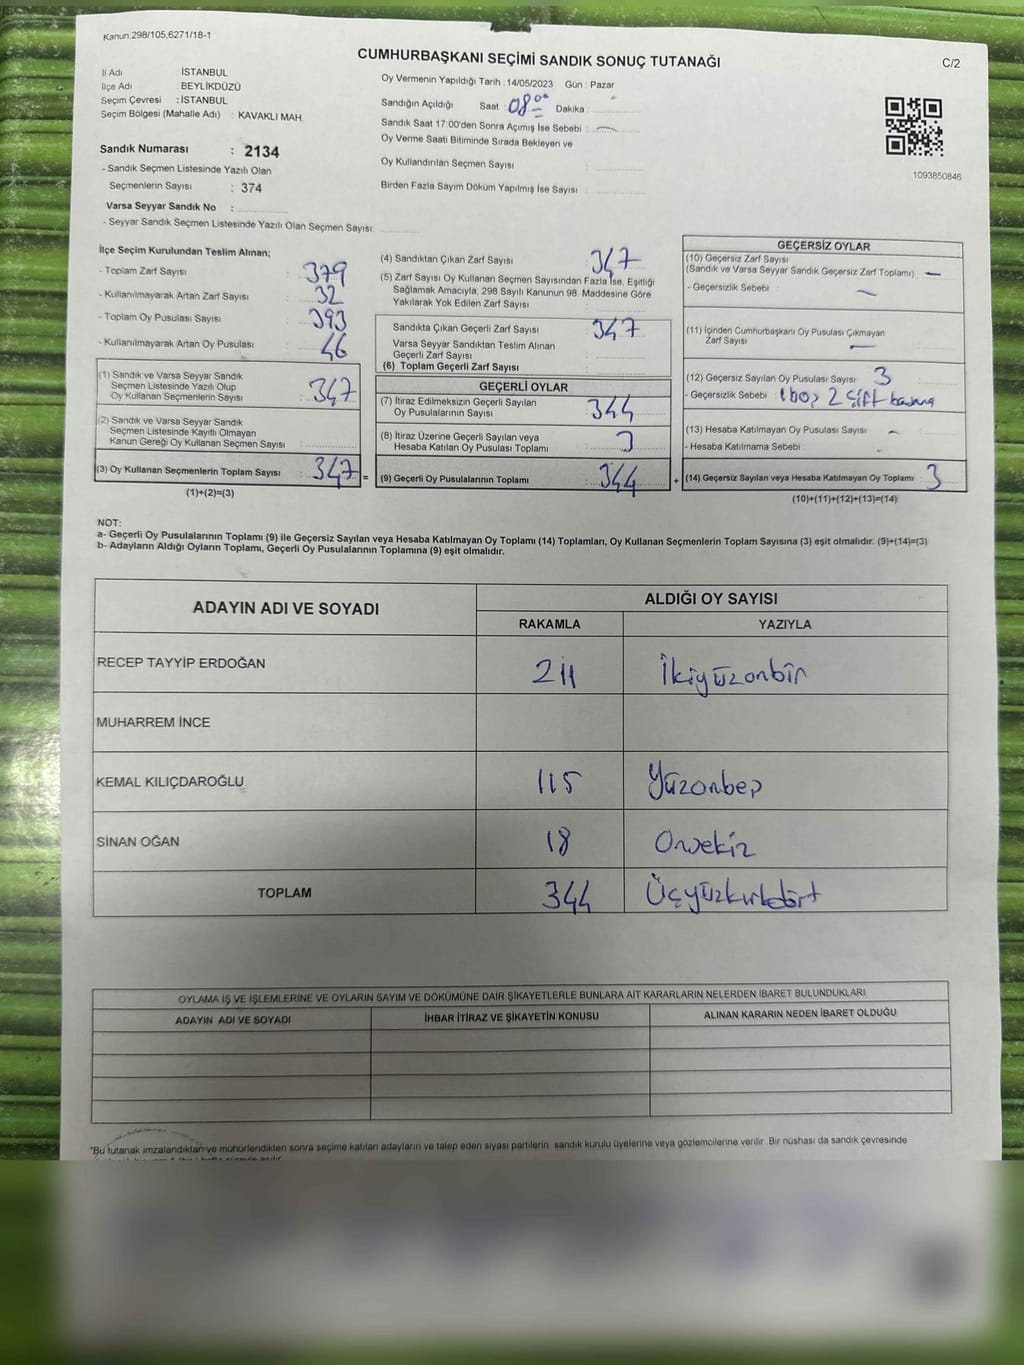 Kanun.298/105,6271/18-1
CUMHURBAŞKANI SEÇİMİ SANDIK SONUÇ TUTANAĞI
C/2
İl Adı : İSTANBUL
İlçe Adı : BEYLİKDÜZÜ
Seçim Çevresi : İSTANBUL
Seçim Bölgesi (Mahalle Adı) : KAVAKLI MAH.
Sandık Numarası : 2134
- Sandık Seçmen Listesinde Yazılı Olan
Seçmenlerin Sayısı : 374
Varsa Seyyar Sandık No :
- Seyyar Sandık Seçmen Listesinde Yazılı Olan Seçmen Sayısı:
Oy Vermenin Yapıldığı Tarih : 14/05/2023 Gün : Pazar
Sandığın Açıldığı Saat : 08⁰⁰ Dakika :
Sandık Saat 17:00'den Sonra Açımış İse Sebebi : —
Oy Verme Saati Bitiminde Sırada Bekleyen ve
Oy Kullandırılan Seçmen Sayısı
Birden Fazla Sayım Döküm Yapılmış İse Sayısı :
1093850846
İlçe Seçim Kurulundan Teslim Alınan;
- Toplam Zarf Sayısı : 379
- Kullanılmayarak Artan Zarf Sayısı : 32
- Toplam Oy Pusulası Sayısı : 393
- Kullanılmayarak Artan Oy Pusulası : 46
(1) Sandık ve Varsa Seyyar Sandık
Seçmen Listesinde Yazılı Olup
Oy Kullanan Seçmenlerin Sayısı : 347
(2) Sandık ve Varsa Seyyar Sandık
Seçmen Listesinde Kayıtlı Olmayan
Kanun Gereği Oy Kullanan Seçmen Sayısı :
(3) Oy Kullanan Seçmenlerin Toplam Sayısı : 347 =
(1)+(2)=(3)
(4) Sandıktan Çıkan Zarf Sayısı : 347
(5) Zarf Sayısı Oy Kullanan Seçmen Sayısından Fazla İse, Eşitliği
Sağlamak Amacıyla, 298 Sayılı Kanunun 98. Maddesine Göre
Yakılarak Yok Edilen Zarf Sayısı :
Sandıkta Çıkan Geçerli Zarf Sayısı : 347
Varsa Seyyar Sandıktan Teslim Alınan
Geçerli Zarf Sayısı :
(6) Toplam Geçerli Zarf Sayısı :
GEÇERLİ OYLAR
(7) İtiraz Edilmeksizin Geçerli Sayılan
Oy Pusulalarının Sayısı : 344
(8) İtiraz Üzerine Geçerli Sayılan veya
Hesaba Katılan Oy Pusulası Toplamı :
(9) Geçerli Oy Pusulalarının Toplamı : 344 +
GEÇERSİZ OYLAR
(10) Geçersiz Zarf Sayısı
(Sandık ve Varsa Seyyar Sandık Geçersiz Zarf Toplamı) : —
- Geçersizlik Sebebi : —
(11) İçinden Cumhurbaşkanı Oy Pusulası Çıkmayan
Zarf Sayısı : —
(12) Geçersiz Sayılan Oy Pusulası Sayısı : 3
- Geçersizlik Sebebi : 1 boş 2 çift basma
(13) Hesaba Katılmayan Oy Pusulası Sayısı : —
- Hesaba Katılmama Sebebi :
(14) Geçersiz Sayılan veya Hesaba Katılmayan Oy Toplamı : 3
(10)+(11)+(12)+(13)=(14)
NOT:
a- Geçerli Oy Pusulalarının Toplamı (9) ile Geçersiz Sayılan veya Hesaba Katılmayan Oy Toplamı (14) Toplamları, Oy Kullanan Seçmenlerin Toplam Sayısına (3) eşit olmalıdır. (9)+(14)=(3)
b- Adayların Aldığı Oyların Toplamı, Geçerli Oy Pusulalarının Toplamına (9) eşit olmalıdır.
ADAYIN ADI VE SOYADI
ALDIĞI OY SAYISI
RAKAMLA YAZIYLA
RECEP TAYYİP ERDOĞAN 211 İkiyüzonbir
MUHARREM İNCE
KEMAL KILIÇDAROĞLU 115 Yüzonbeş
SİNAN OĞAN 18 Onsekiz
TOPLAM 344 Üçyüzkırkdört
OYLAMA İŞ VE İŞLEMLERİNE VE OYLARIN SAYIM VE DÖKÜMÜNE DAİR ŞİKAYETLERLE BUNLARA AİT KARARLARIN NELERDEN İBARET BULUNDUKLARI
ADAYIN ADI VE SOYADI İHBAR İTİRAZ VE ŞİKAYETİN KONUSU ALINAN KARARIN NEDEN İBARET OLDUĞU
*Bu tutanak imzalandıktan ve mühürlendikten sonra seçime katılan adayların ve talep eden siyasi partilerin sandık kurulu üyelerine veya gözlemcilerine verilir. Bir nüshası da sandık çevresinde